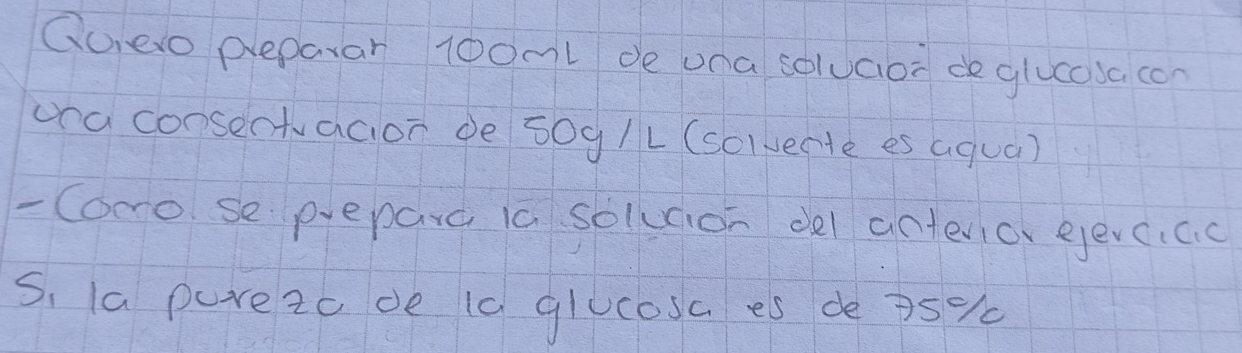 Quiero preparar 100mL de una solución de glucosa con
una consentración de 50g/L (solvente es agua)
- Como se prepara la solución del anterior ejercicio
Si la pureza de la glucosa es de 75%